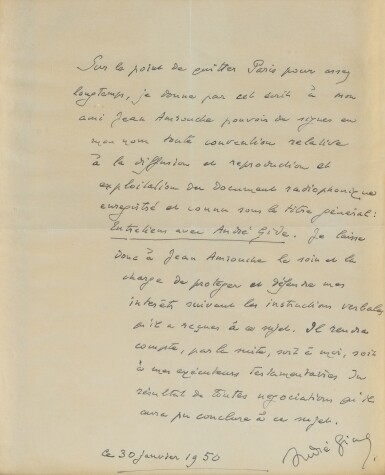 Sur le point de quitter Paris pour assez
longtemps, je donne par cet écrit à mon
ami Jean Amrouche pouvoir de signer en
mon nom toute convention relative
à la diffusion et reproduction et
exploitation du Document radiophonique
enregistré et connu sous le titre général:
Entretiens avec André Gide. Je laisse
donc à Jean Amrouche le soin et la
charge de protéger et défendre mes
intérêts suivant les instructions verbales
qu'il a reçues à ce sujet. Il rendra
compte, par la suite, soit à moi, soit
à mes exécuteurs testamentaires du
résultat de toutes négociations qu'il
aura pu conclure à ce sujet.
le 30 janvier 1950
André Gide